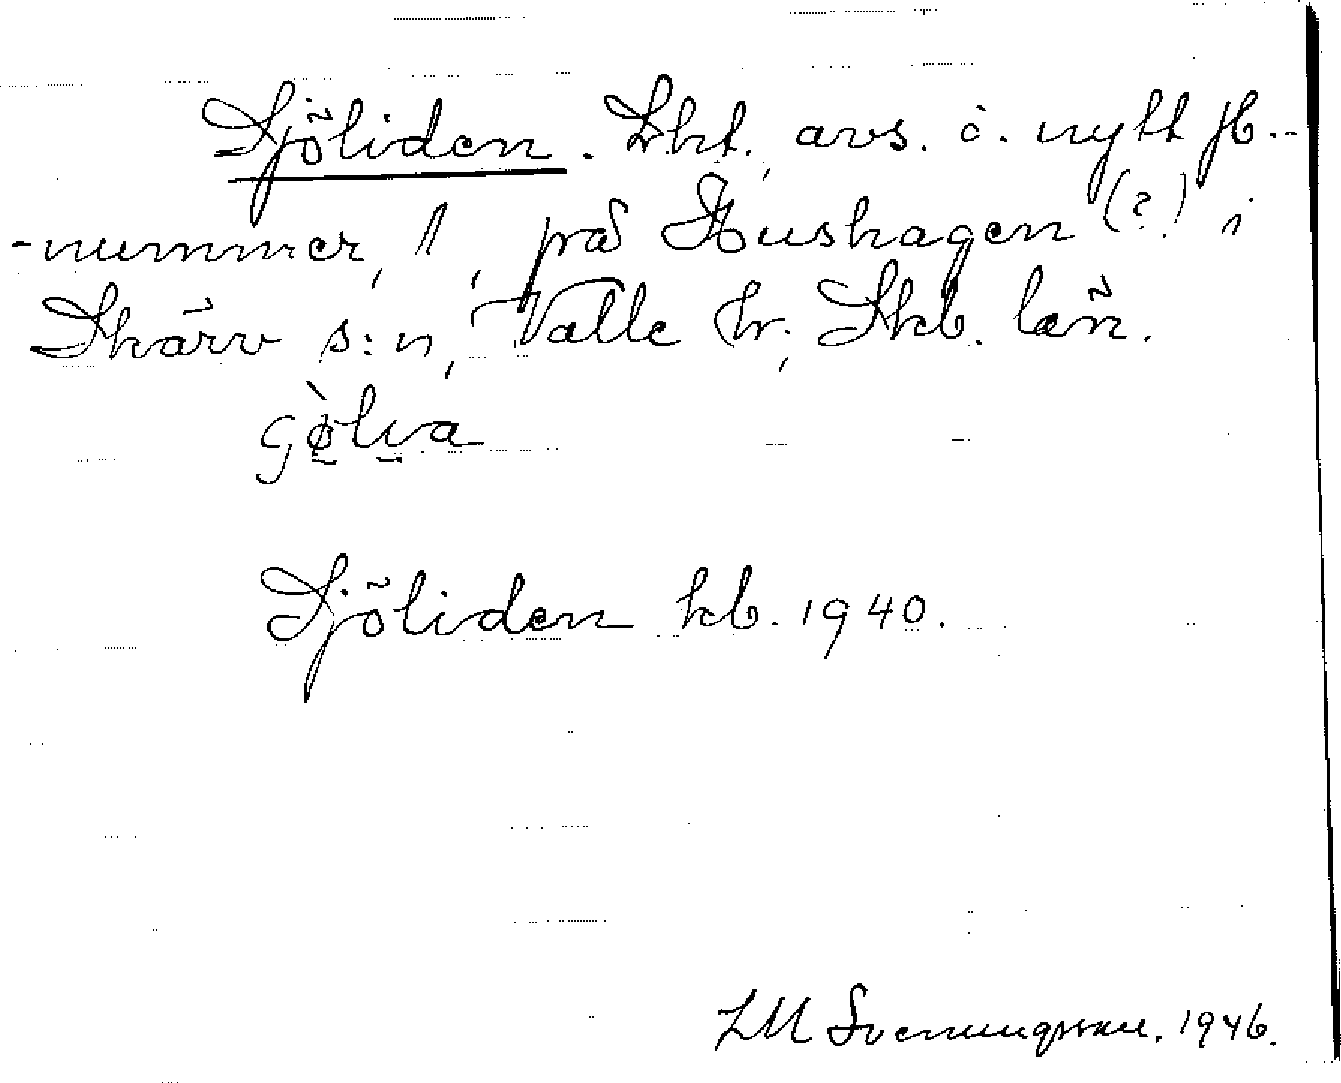 Sjöliden. Lht., avs. o. nytt jb.-
-nummer, 1, på Hushagen (?) i
Skärv s:n, Valle hr, Skb. län.
gò̤lva
Sjöliden kb. 1940.
LM Svenungsson. 1946.